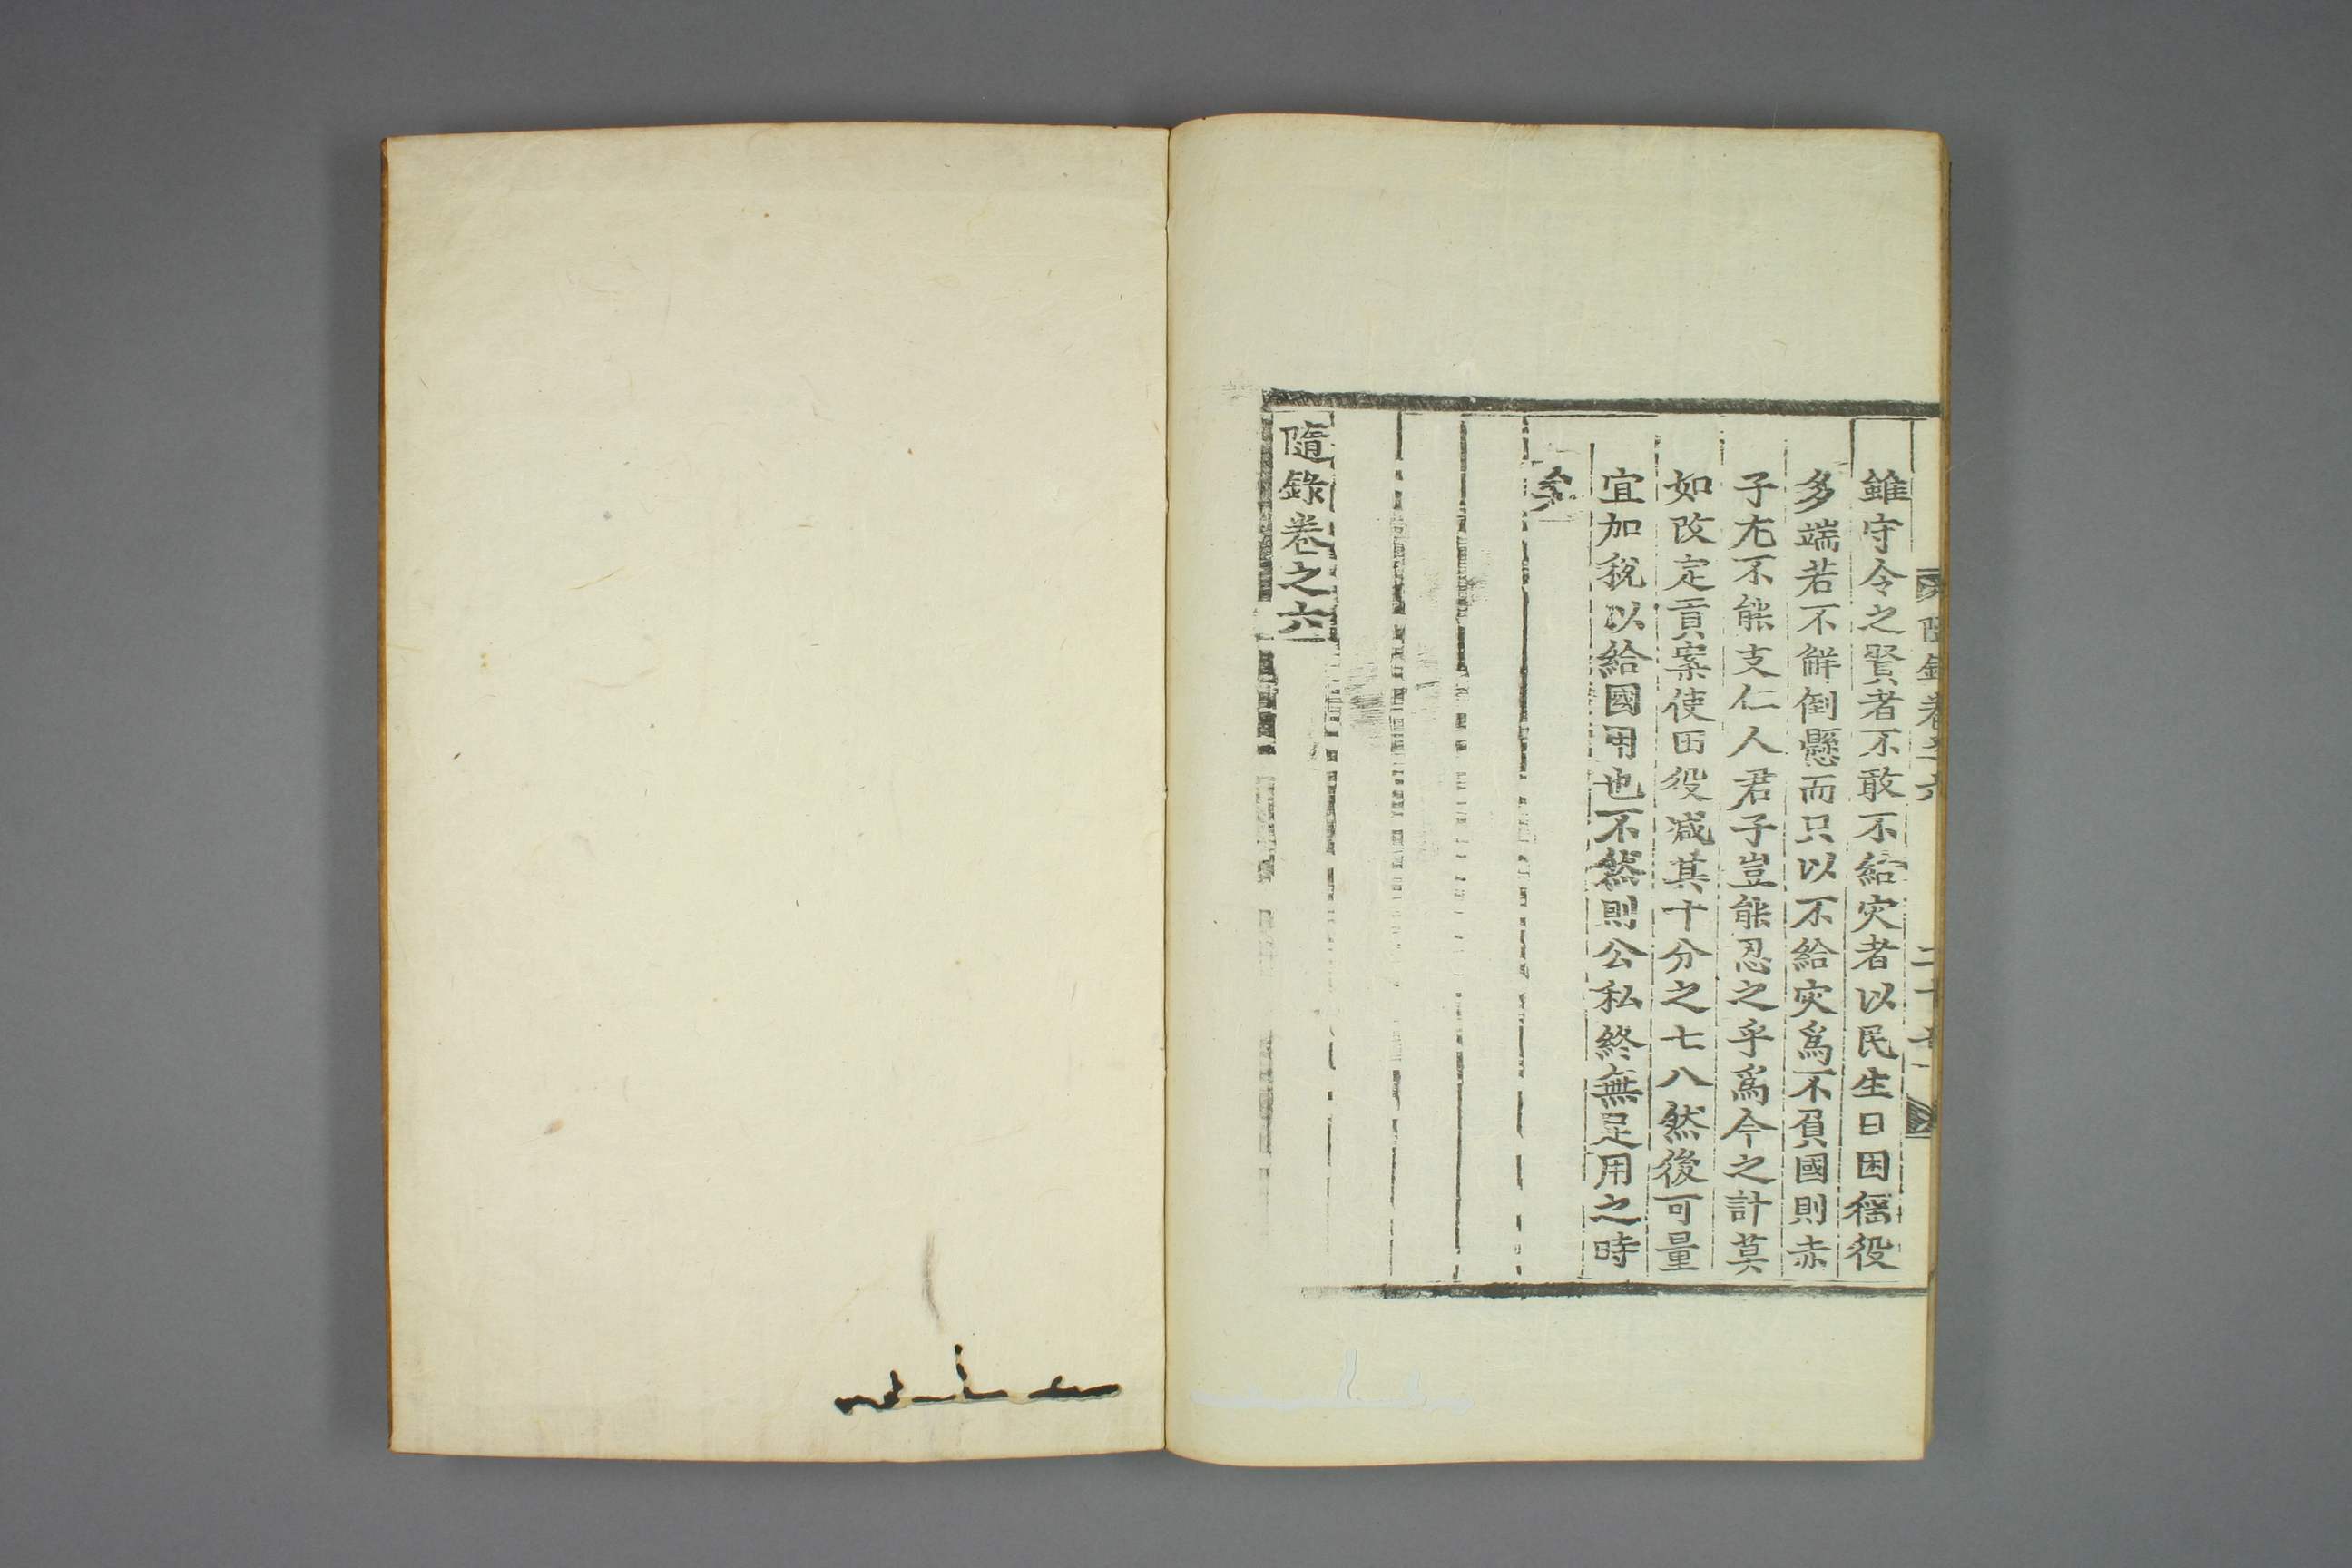 隨錄卷之六
雖守令之賢者不敢不給灾者以民生日困徭役
多端若不解倒懸而只以不給灾爲不負國則赤
子尤不能支仁人君子豈能忍之乎爲今之計莫
如改定貢案使田役减其十分之七八然後可量
宜加稅以給國用也不然則公私終無足用之時
矣
隨錄卷之六